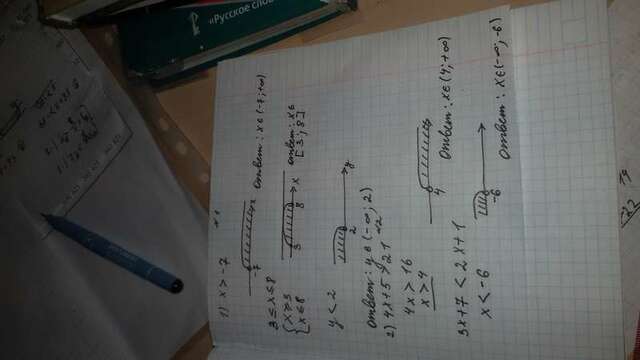 1) x > -7 №1
-7 x
Ответ: x∈(-7; +∞)
3 ≤ x ≤ 8
{ x ≥ 3
x ≤ 8
3 8 x
Ответ: x∈
[3; 8]
y < 2
2 y
Ответ: y∈(-∞; 2)
2) 4x+5 > 21 №2
4x > 16
x > 4
4
Ответ: x∈(4; +∞)
3x+7 < 2x+1
x < -6
-6
Ответ: x∈(-∞; -6)
"Русское сло